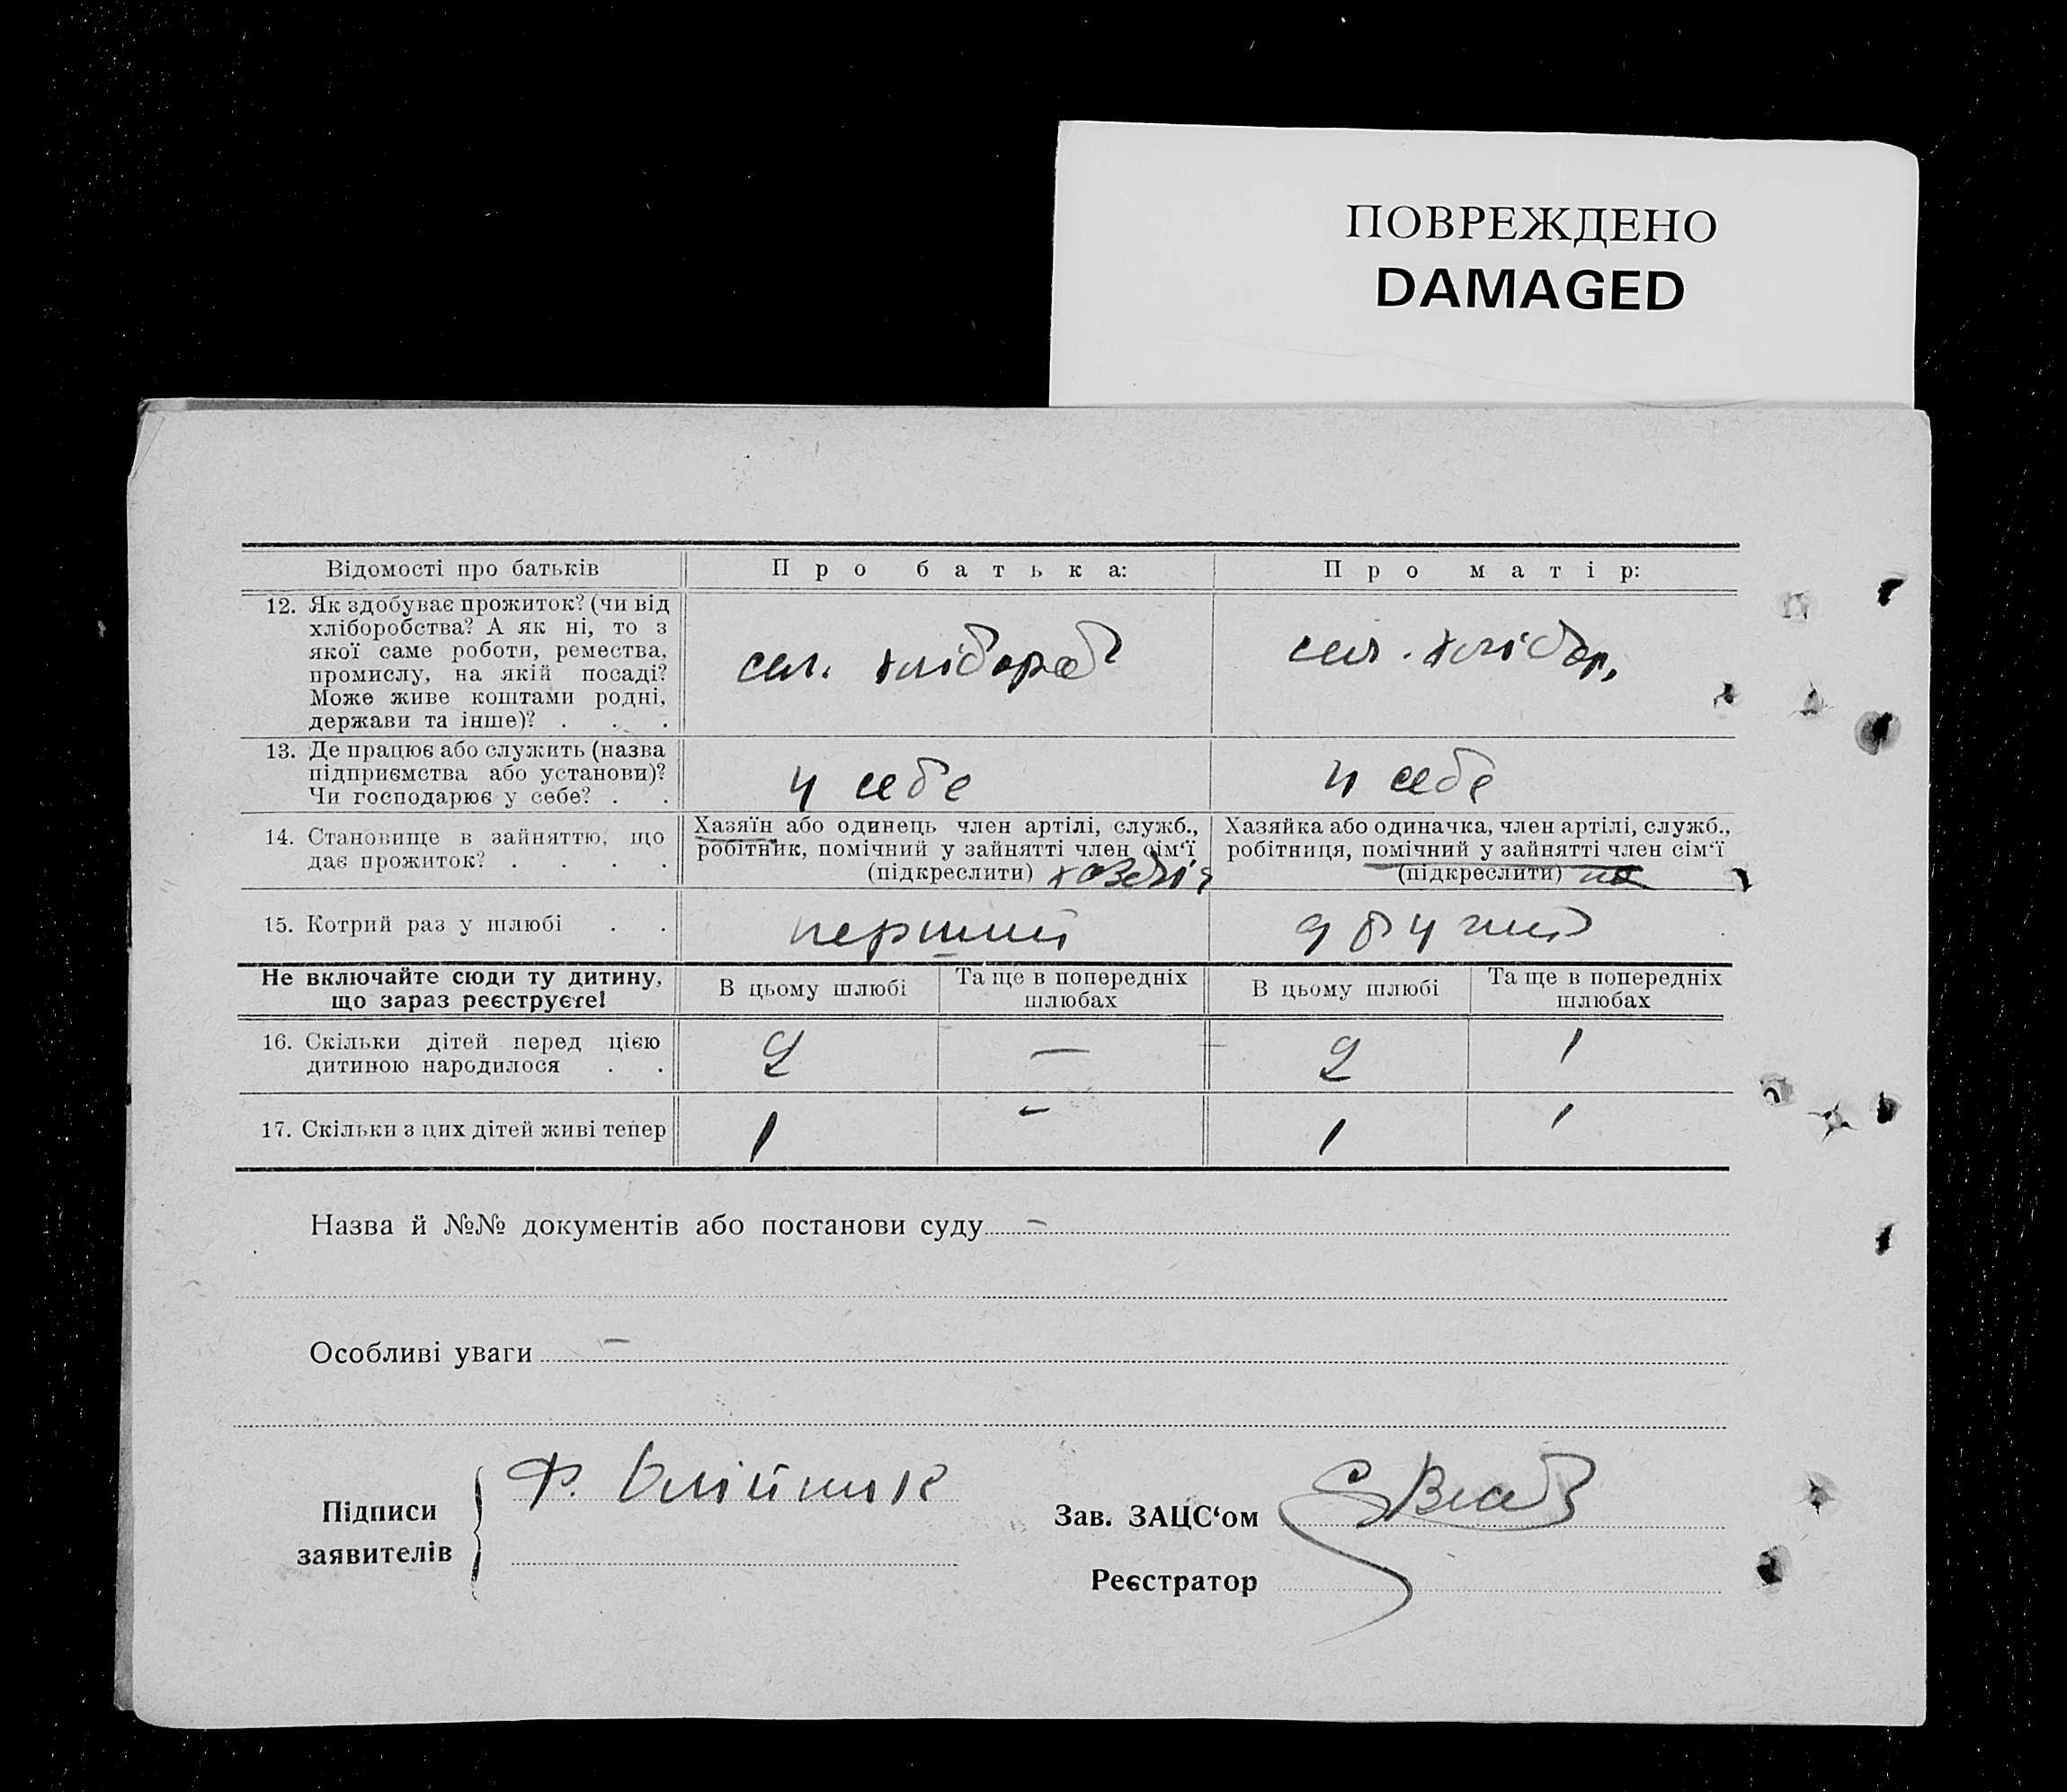 ПОВРЕЖДЕНО
DAMAGED
Відомості про батьків
Про батька:
Про матір:
12. Як здобуває прожиток? (чи від
хліборобства? А як ні, то з
якої саме роботи, ремества,
промислу, на якій посаді?
Може живе коштами родні,
держави та інше)? . . .
сел. хлібороб
сел. хлібор,
13. Де працює або служить (назва
підприємства або установи)?
Чи господарює у себе? . .
у себе
у себе
14. Становище в зайняттю, що
дає прожиток? . . . .
Хазяїн або одинець член артілі, служб.,
робітник, помічний у зайнятті член сім'ї
(підкреслити)
Хазяйка або одиначка, член артілі, служб.,
робітниця, помічний у зайнятті член сім'ї
(підкреслити)
15. Котрий раз у шлюбі . .
перший
другий
Не включайте сюди ту дитину,
що зараз реєструєте!
В цьому шлюбі
Та ще в попередніх
шлюбах
В цьому шлюбі
Та ще в попередніх
шлюбах
16. Скільки дітей перед цією
дитиною народилося . .
2
—
2
1
17. Скільки з цих дітей живі тепер
1
-
1
1
Назва й №№ документів або постанови суду –
Особливі уваги –
Підписи
заявителів
Ф. Олійник
Зав. ЗАЦС'ом
Реєстратор